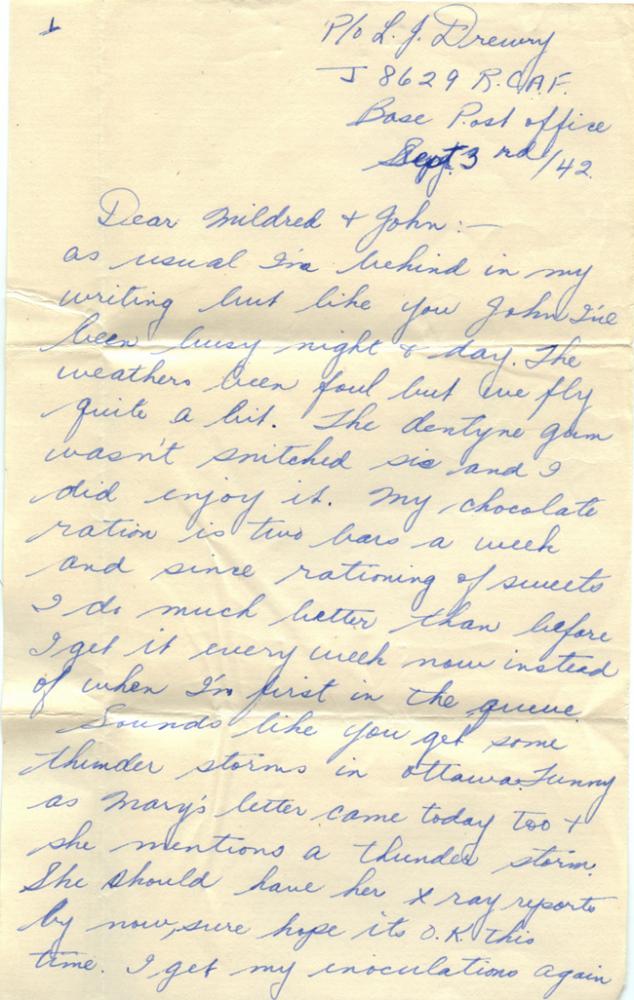 1
P/o L. J. Drewry
J 8629 R.C.A.F.
Base Post office
Sept. 3 rd/42
Dear Mildred & John:—
as usual I'm behind in my
writing but like you John I've
been busy night & day. The
weathers been foul but we fly
quite a bit. The dentyne gum
wasn't snitched sis and I
did enjoy it. My chocolate
ration is two bars a week
and since rationing of sweets
I do much better than before
I get it every week now instead
of when I'm first in the queue
Sounds like you get some
thunder storms in Ottawa. Funny
as Mary's letter came today too &
she mentions a thunder storm.
She should have her X ray reports
by now, sure hope its O.K. this
time. I get my inoculations again